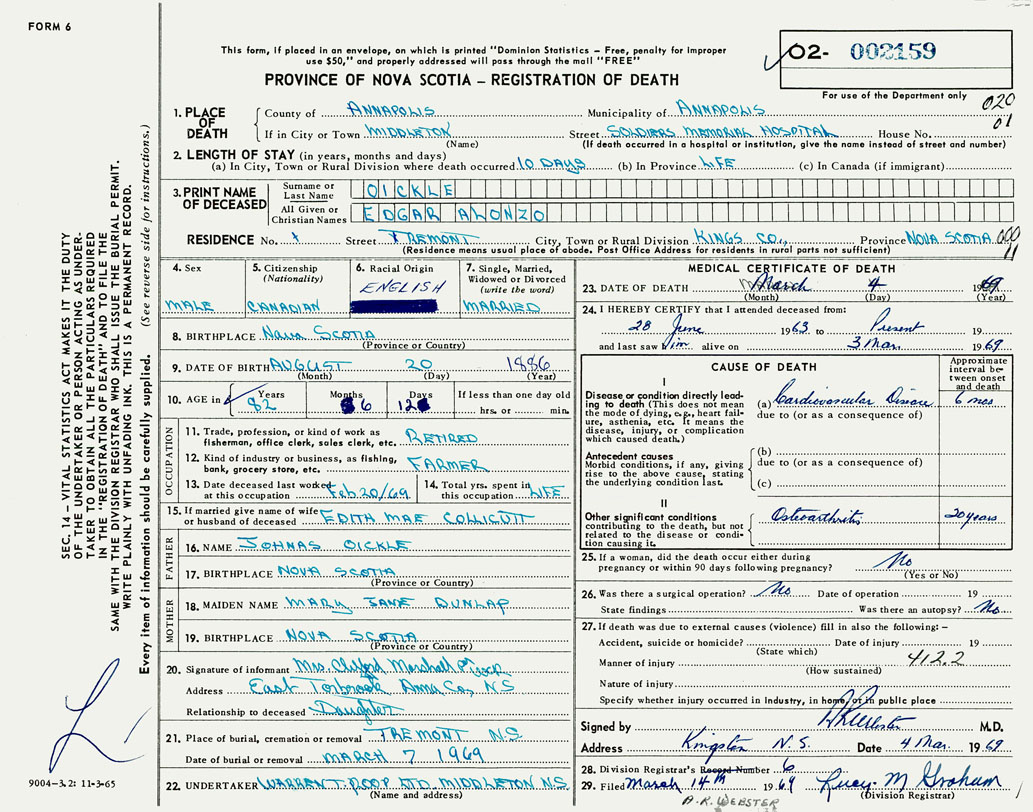 FORM 6
This form, if placed in an envelope, on which is printed "Dominion Statistics – Free, penalty for improper
use $50," and properly addressed will pass through the mail "FREE"
PROVINCE OF NOVA SCOTIA – REGISTRATION OF DEATH
02- 002159
For use of the Department only
020
01
1. PLACE OF DEATH
County of ANNAPOLIS Municipality of ANNAPOLIS
If in City or Town MIDDLETON Street SOLDIERS MEMORIAL HOSPITAL House No.
(Name) (If death occurred in a hospital or institution, give the name instead of street and number)
2. LENGTH OF STAY (in years, months and days)
(a) In City, Town or Rural Division where death occurred 10 DAYS (b) In Province LIFE (c) In Canada (if immigrant)
3. PRINT NAME OF DECEASED
Surname or Last Name OICKLE
All Given or Christian Names EDGAR ALONZO
RESIDENCE No. Street TREMONT City, Town or Rural Division KINGS CO., Province NOVA SCOTIA 000
(Residence means usual place of abode. Post Office Address for residents in rural parts not sufficient) 11
4. Sex
MALE
5. Citizenship
(Nationality)
CANADIAN
6. Racial Origin
ENGLISH
7. Single, Married,
Widowed or Divorced
(write the word)
MARRIED
8. BIRTHPLACE NOVA SCOTIA
(Province or Country)
9. DATE OF BIRTH AUGUST 20 1886
(Month) (Day) (Year)
10. AGE in Years Months Days If less than one day old
82 6 12 hrs. or min.
OCCUPATION
11. Trade, profession, or kind of work as
fisherman, office clerk, sales clerk, etc. RETIRED
12. Kind of industry or business, as fishing,
bank, grocery store, etc. FARMER
13. Date deceased last worked
at this occupation Feb 20/69
14. Total yrs. spent in
this occupation LIFE
15. If married give name of wife
or husband of deceased EDITH MAE COLLICUTT
FATHER
16. NAME JOHNAS OICKLE
17. BIRTHPLACE NOVA SCOTIA
(Province or Country)
MOTHER
18. MAIDEN NAME MARY JANE DUNLAP
19. BIRTHPLACE NOVA SCOTIA
(Province or Country)
20. Signature of informant Mrs. Clifford Marshall
Address East Torbrook Anna Co, NS
Relationship to deceased Daughter
21. Place of burial, cremation or removal TREMONT N.S
Date of burial or removal MARCH 7 1969
22. UNDERTAKER WARREN T. ROOP LTD. MIDDLETON N.S.
(Name and address)
MEDICAL CERTIFICATE OF DEATH
23. DATE OF DEATH March 4 1969
(Month) (Day) (Year)
24. I HEREBY CERTIFY that I attended deceased from:
28 June 1963 to Present 19
and last saw him alive on 3 Mar. 1969
CAUSE OF DEATH
Approximate
interval be-
tween onset
and death
I
Disease or condition directly lead-
ing to death (This does not mean
the mode of dying, e.g., heart fail-
ure, asthenia, etc. It means the
disease, injury, or complication
which caused death.)
(a) Cardiovascular Disease 6 mos
due to (or as a consequence of)
Antecedent causes
Morbid conditions, if any, giving
rise to the above cause, stating
the underlying condition last.
(b)
due to (or as a consequence of)
(c)
II
Other significant conditions
contributing to the death, but not
related to the disease or condi-
tion causing it.
Osteoarthritis 20 years
25. If a woman, did the death occur either during
pregnancy or within 90 days following pregnancy? No
(Yes or No)
26. Was there a surgical operation? No Date of operation 19
State findings Was there an autopsy? No
27. If death was due to external causes (violence) fill in also the following: –
Accident, suicide or homicide? Date of injury 19
(State which)
Manner of injury 412.2
(How sustained)
Nature of injury
Specify whether injury occurred in Industry, in home, or in public place
Signed by M.D.
Address Kingston N.S. Date 4 Mar. 1969
28. Division Registrar's Record Number 6
29. Filed March 14th 1969 Lucy M Graham
(Division Registrar)
WEBSTER
SEC. 14 – VITAL STATISTICS ACT MAKES IT THE DUTY
OF THE UNDERTAKER OR PERSON ACTING AS UNDER-
TAKER TO OBTAIN ALL THE PARTICULARS REQUIRED
IN THE "REGISTRATION OF DEATH" AND TO FILE THE
SAME WITH THE DIVISION REGISTRAR WHO SHALL ISSUE THE BURIAL PERMIT.
WRITE PLAINLY WITH UNFADING INK. THIS IS A PERMANENT RECORD.
Every item of information should be carefully supplied. (See reverse side for instructions.)
9004-3.2: 11-3-65